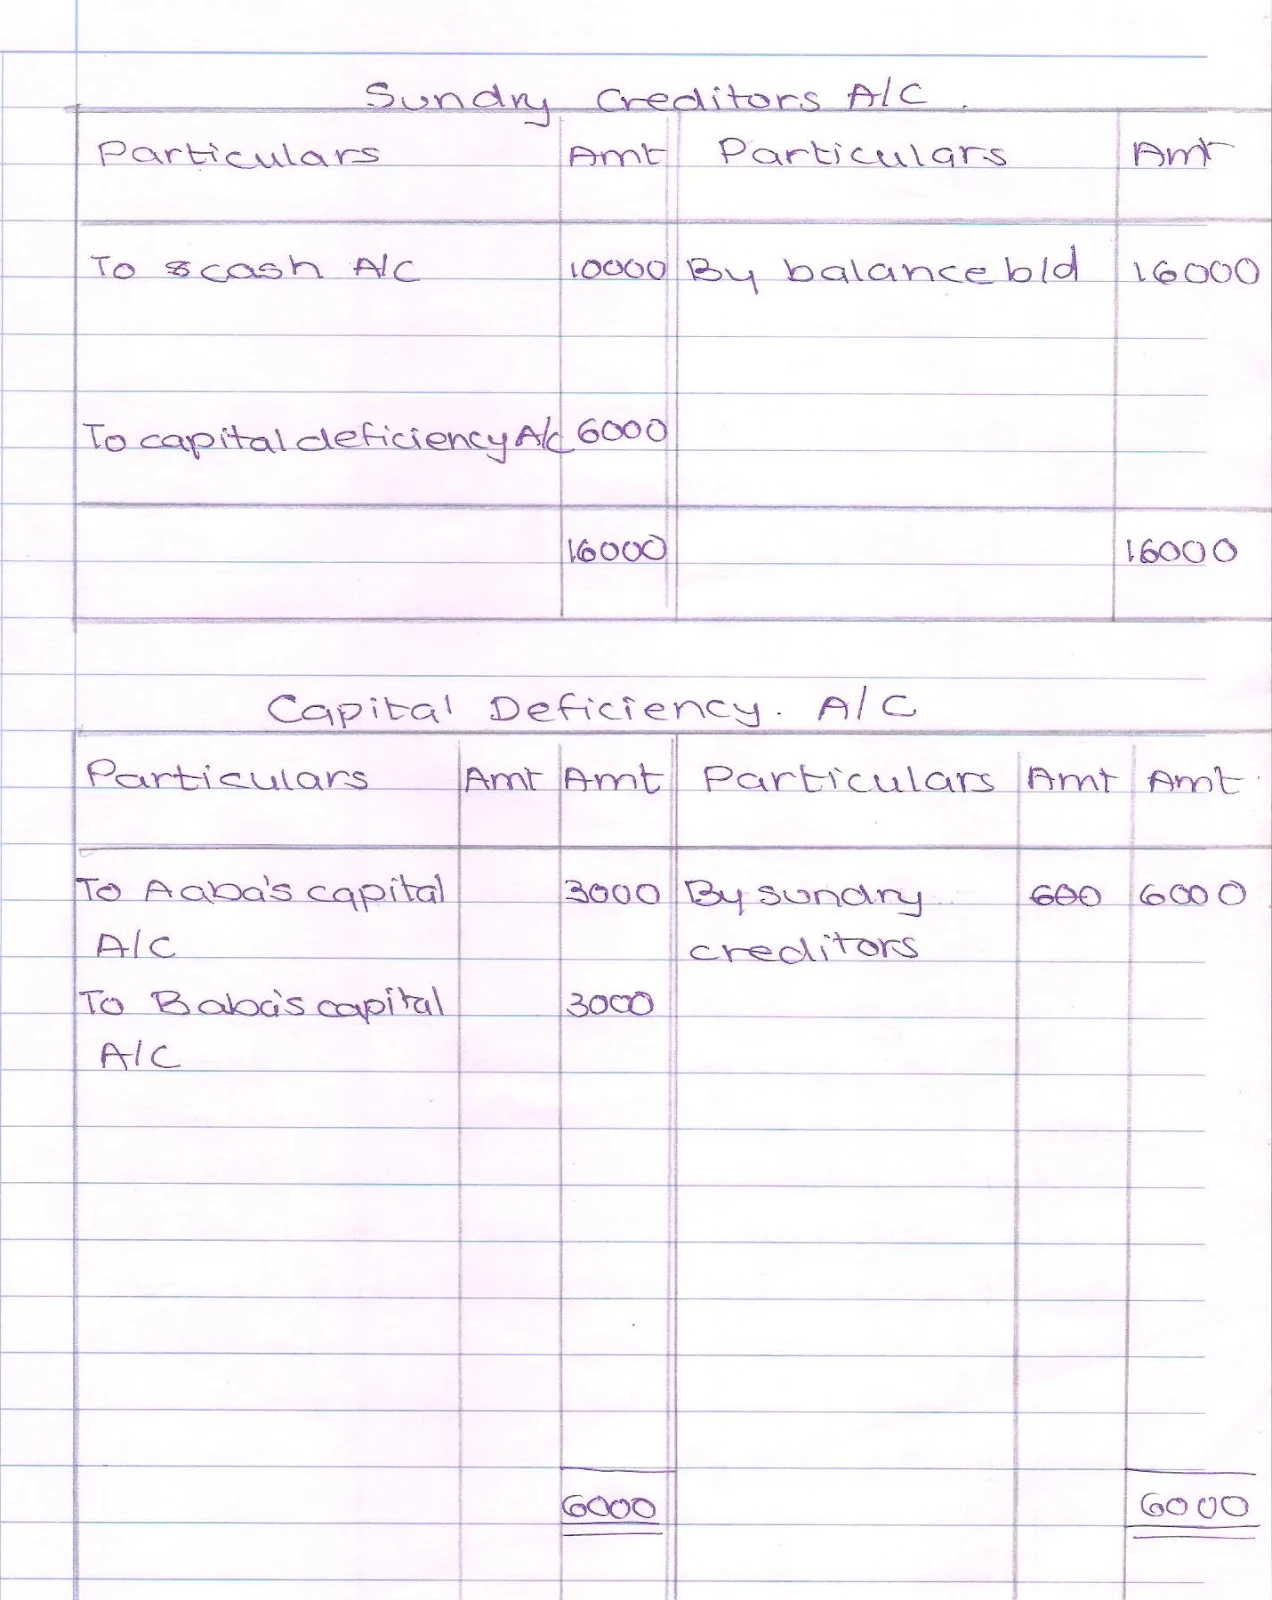 Sundry Creditors A/C.
Particulars Amt Particulars Amt
To cash A/C 10000 By balance b/d 16000
To capital deficiency A/c 6000
16000 16000
Capital Deficiency. A/C
Particulars Amt Amt Particulars Amt Amt
To Aaba's capital 3000 By sundry 600 6000
A/C creditors
To Baba's capital 3000
A/C
6000 6000